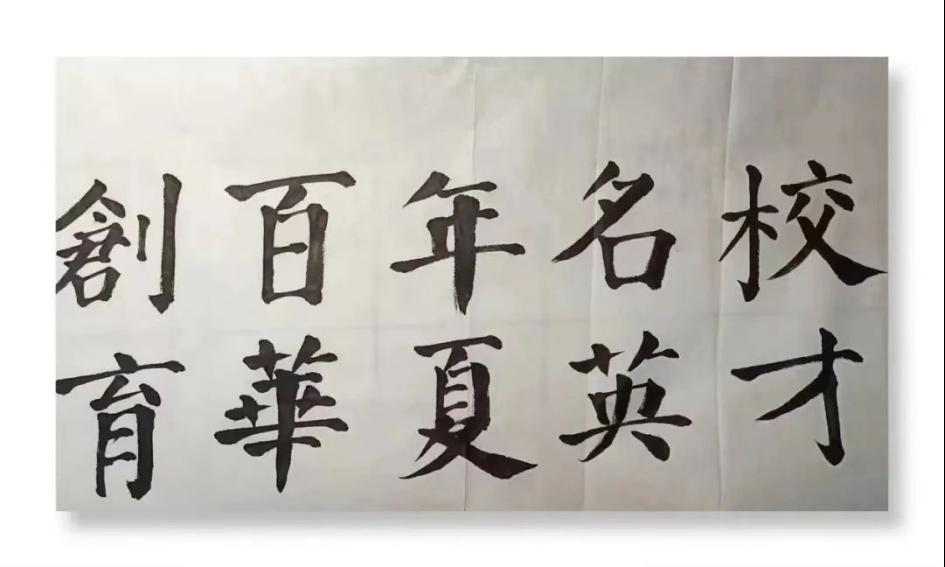 創百年名校
育華夏英才